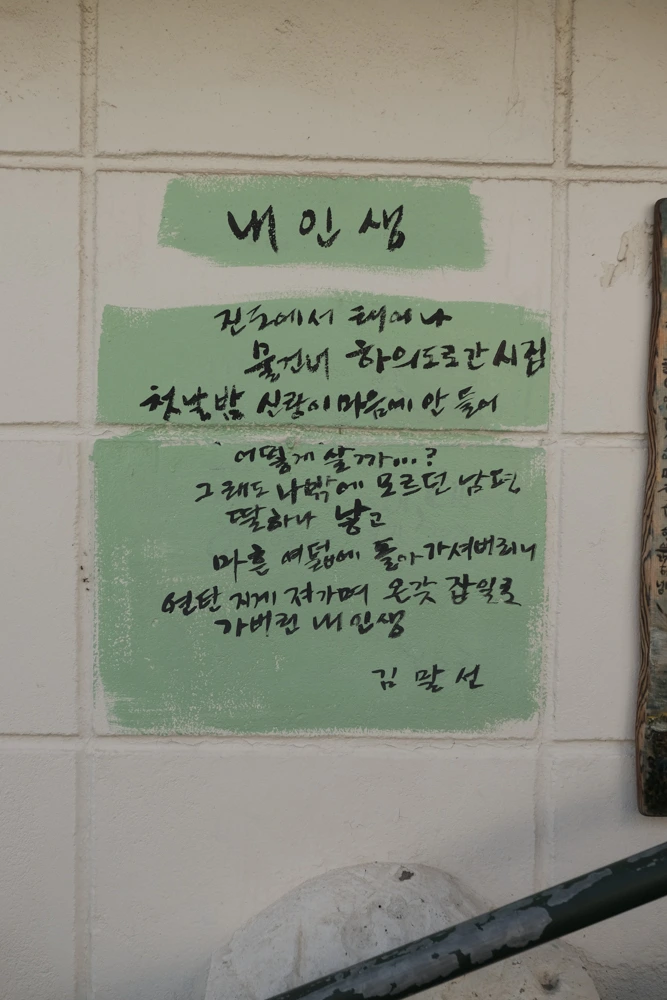 내 인생
진도에서 태어나
물건너 하의도로간 시집
첫날밤 신랑이 마음에 안 들어
어떻게 살까...?
그래도 나밖에 모르던 남편
딸하나 낳고
마흔 여덟에 돌아가셔버리니
연탄 지게 져가며 온갖 잡일로
가버린 내 인생
김 말 선